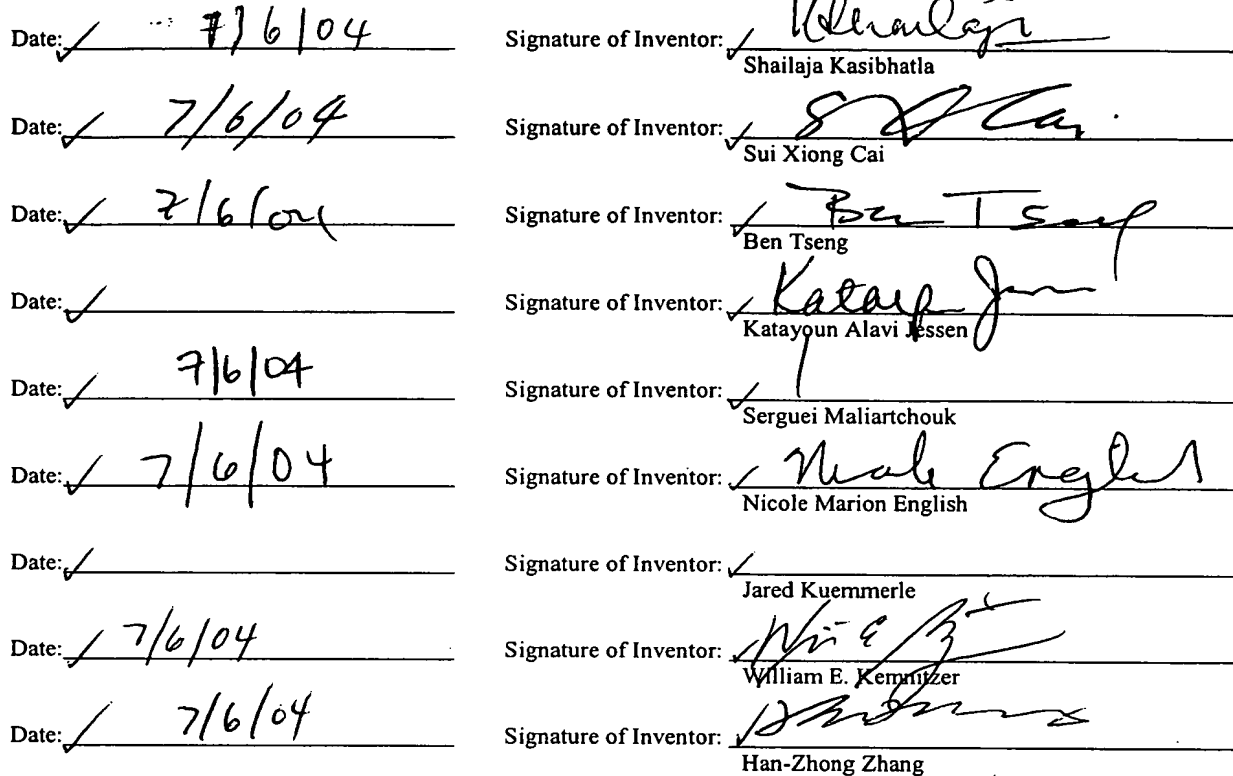 Date: 7/6/04 Signature of Inventor:
Shailaja Kasibhatla
Date: 7/6/04 Signature of Inventor: S Cai
Sui Xiong Cai
Date: 7/6/04 Signature of Inventor: Ben Tseng
Ben Tseng
Date: Signature of Inventor:
Katayoun Alavi Jessen
Date: 7/6/04 Signature of Inventor:
Serguei Maliartchouk
Date: 7/6/04 Signature of Inventor: Nicole English
Nicole Marion English
Date: Signature of Inventor:
Jared Kuemmerle
Date: 7/6/04 Signature of Inventor:
William E. Kemnitzer
Date: 7/6/04 Signature of Inventor:
Han-Zhong Zhang